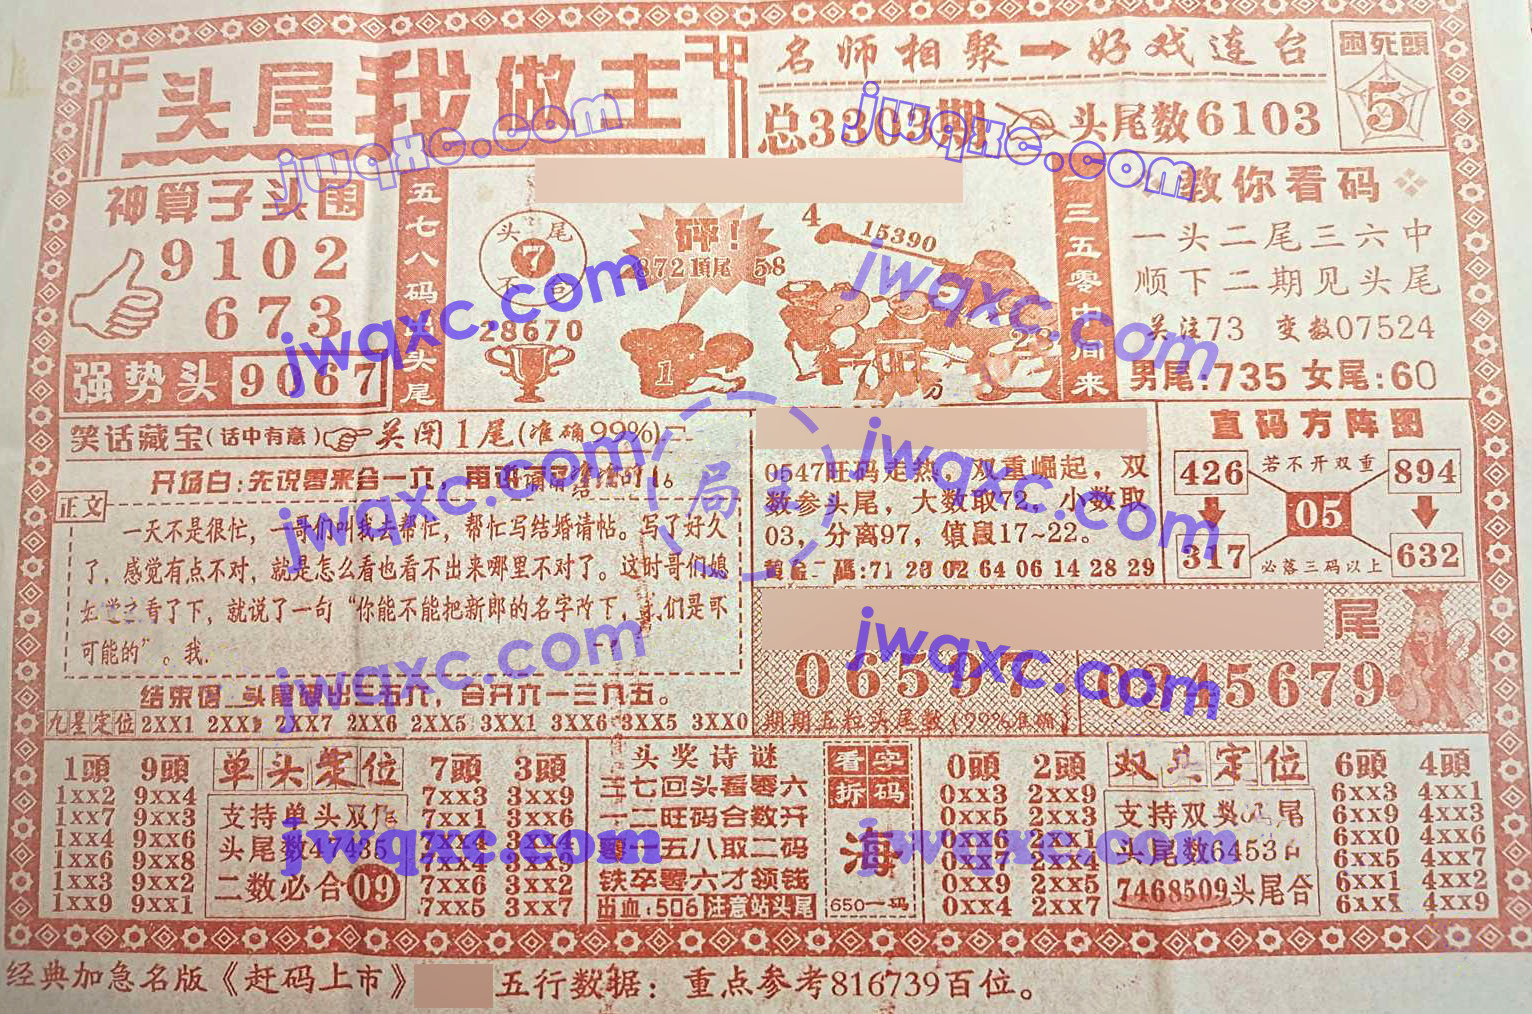 头尾我做主
名师相聚→好戏连台
困死頭
5
总3303期
头尾数6103
神算子头围
9102
673
强势头 9067
五七八码出头尾
头尾
7
不合
28670
砰!
872頂尾 58
1
4
15390
三五零中间来
教你看码
一头二尾三六中
顺下二期见头尾
关注73 变数07524
男尾:735 女尾:60
笑话藏宝(话中有意)
关闭1尾(准确99%)
开场白:先说零来合一六,
正文
一天不是很忙,一哥们叫我去帮忙,帮忙写结婚请帖。写了好久
了,感觉有点不对,就是怎么看也看不出来哪里不对了。这时哥们媳
看了下,就说了一句“你能不能把新郎的名字改下,们是不
可能的”。我.
头尾硬出三五九,合开六一三九五。
九星定位 2XX1 2XX1 2XX7 2XX6 2XX5 3XX1 3XX6 3XX5 3XX0
0547旺码走热,双重崛起,双
数参头尾,大数取72,小数取
03,分离97,值最17~22。
黄金二碼:71 26 02 64 06 14 28 29
直码方阵图
426 若不开双重 894
05
317 必落三码以上 632
尾
06597
0245679
期期五粒头尾数(99%准确)
1頭 9頭
1xx2 9xx4
1xx7 9xx3
1xx4 9xx6
1xx6 9xx8
1xx3 9xx2
1xx9 9xx1
单头定位
支持单头双尾
头尾数47435
二数必合09
7頭 3頭
7xx3 3xx9
7xx1 3xx6
7xx4 3xx4
7xx4 3xx9
7xx6 3xx2
7xx5 3xx7
头奖诗谜
三七回头看零六
一二旺码合数开
零一五八取二码
铁卒零六才领钱
出血:506 注意站头尾
看字
折码
海
650一码
0頭 2頭
0xx3 2xx9
0xx5 2xx3
0xx6 2xx1
0xx7 2xx4
0xx9 2xx5
0xx4 2xx7
双头定位
支持双数 尾
头尾数6453
7468509头尾合
6頭 4頭
6xx3 4xx1
6xx9 4xx3
6xx0 4xx6
6xx5 4xx7
6xx1 4xx2
6xxx 4xx9
经典加急名版《赶码上市》 五行数据:重点参考816739百位。
jwqxc.com
jwqxc.com
jwqxc.com
jwqxc.com
jwqxc.com
jwqxc.com
jwqxc.com
jwqxc.com
jwqxc.com
jwqxc.com
局